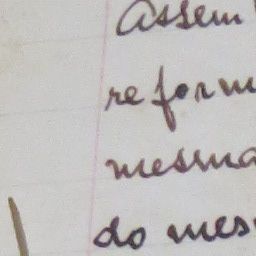 Assem
reform
mesma
do mes